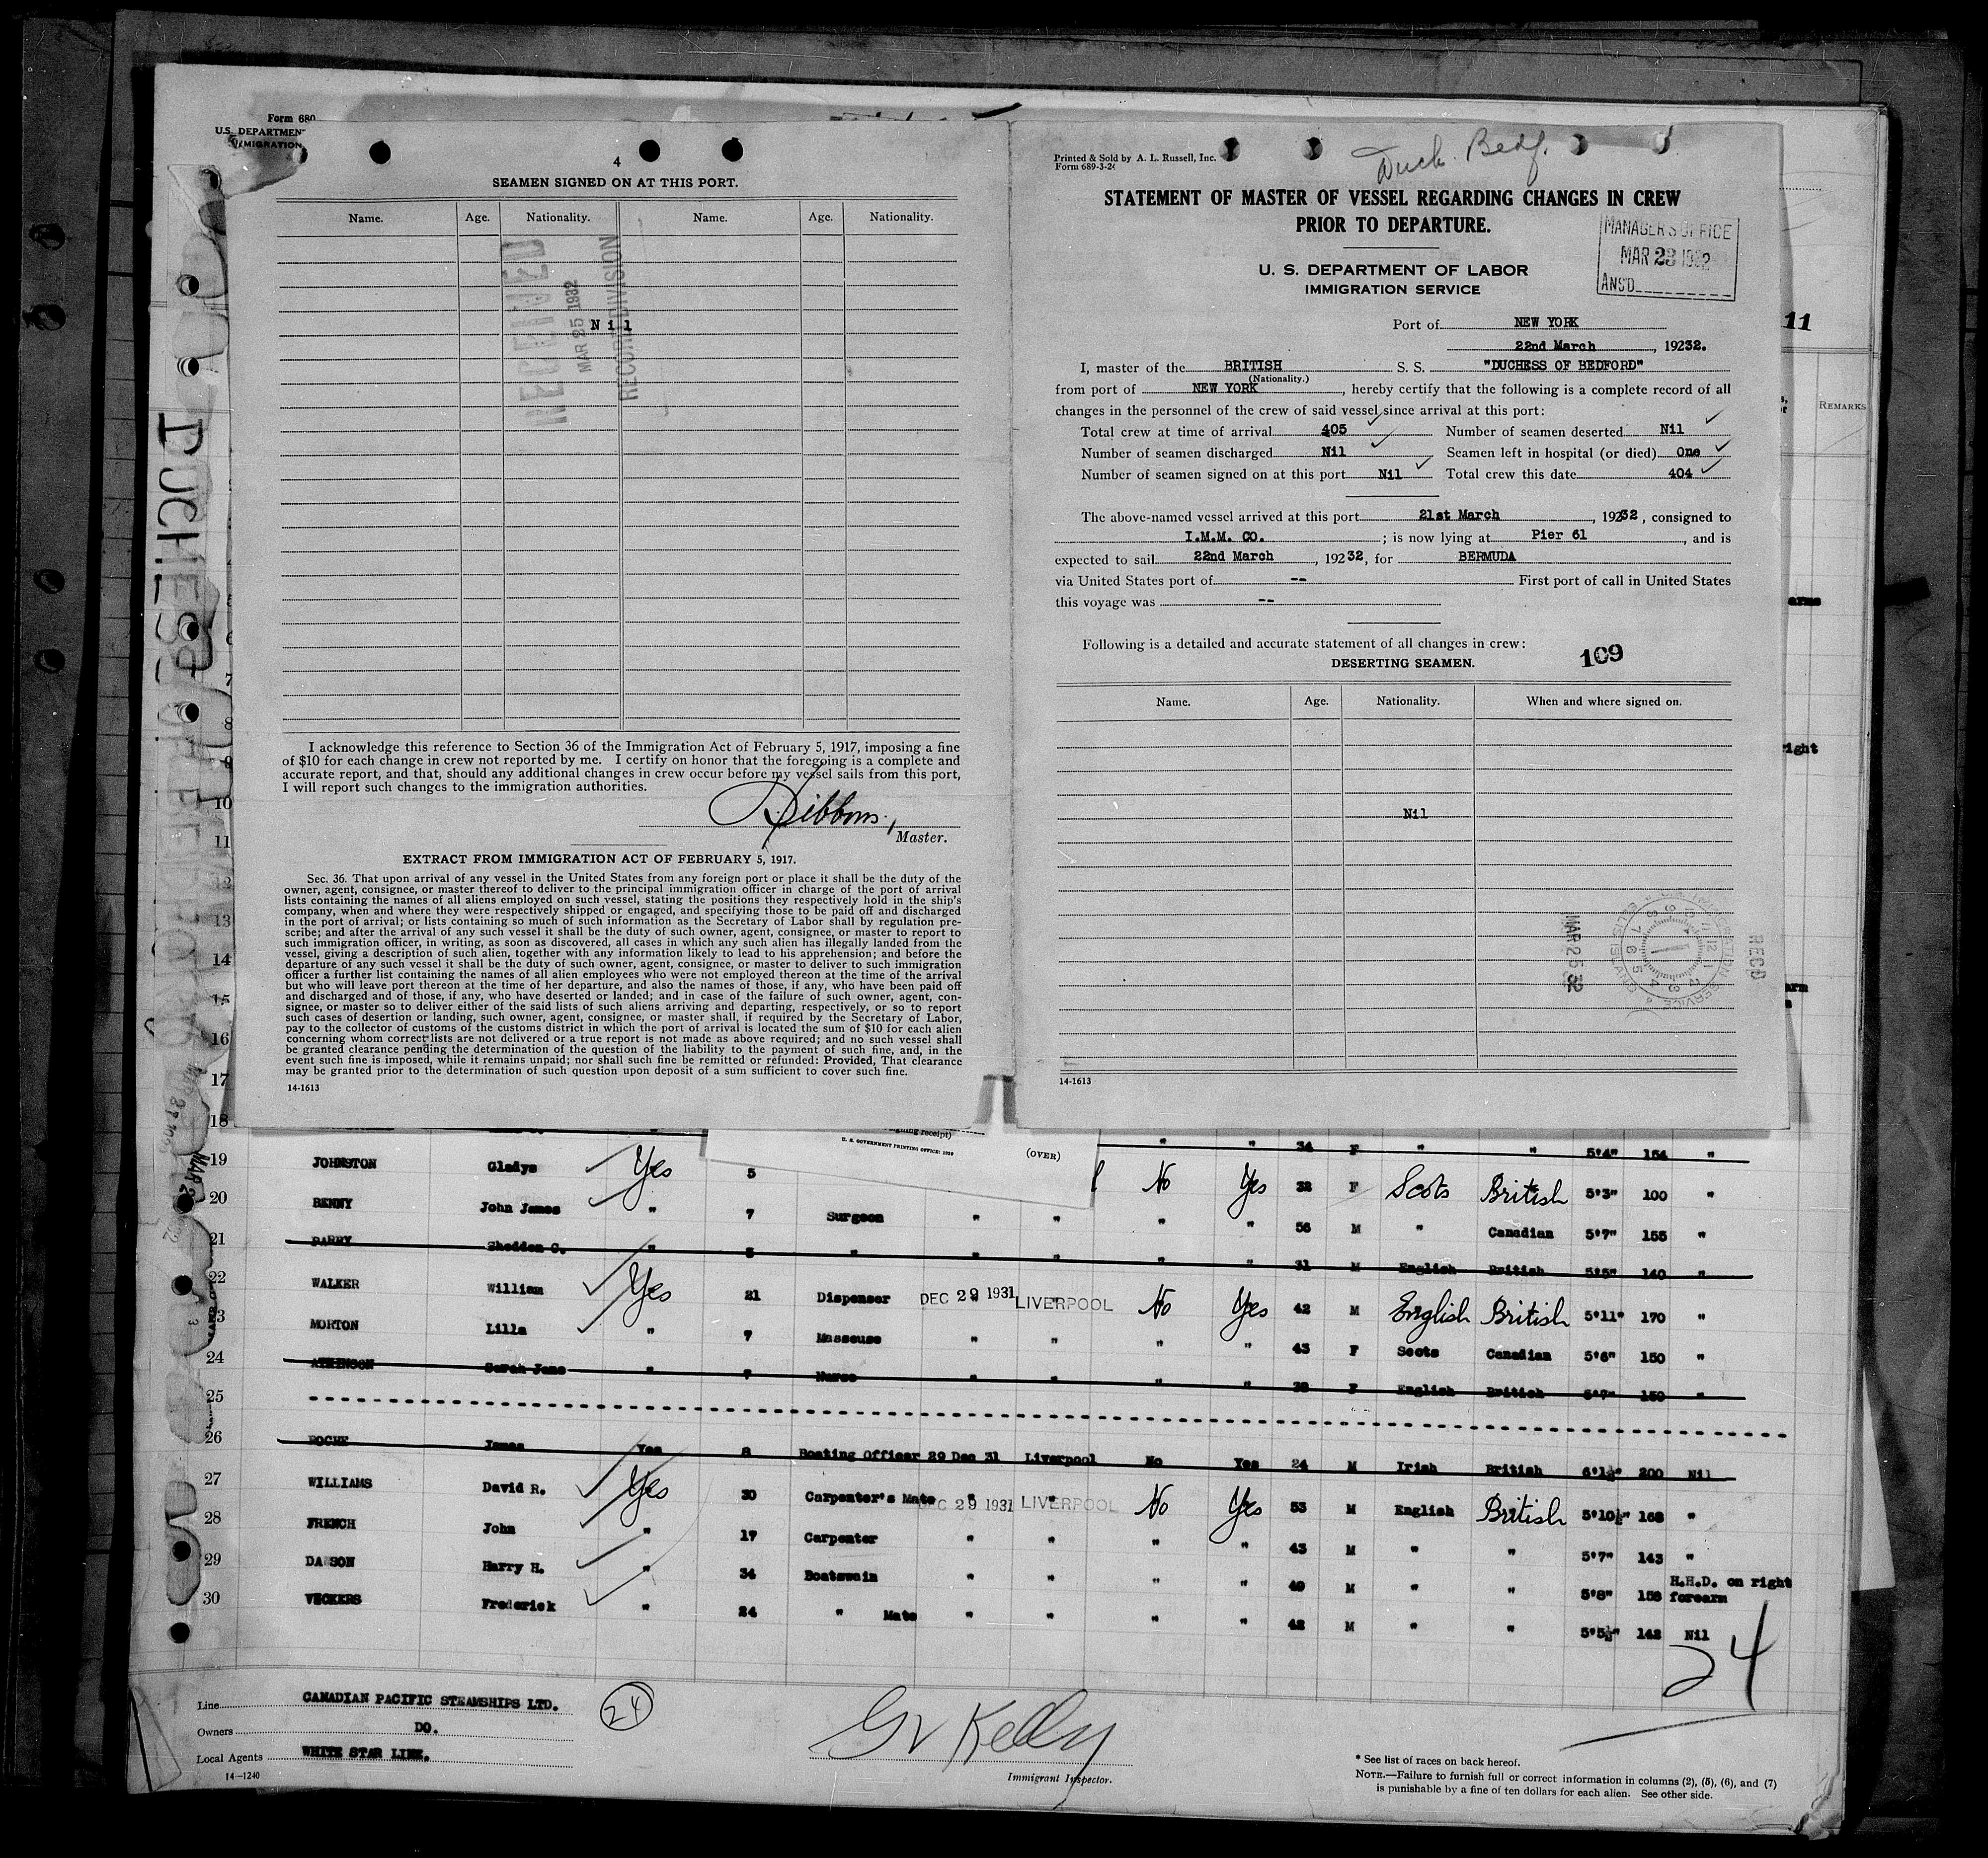 Form 680
U.S. DEPARTMEN
IMMIGRATION
4
SEAMEN SIGNED ON AT THIS PORT.
Name. Age. Nationality. Name. Age. Nationality.
RECEIVED
MAR 25 1932
RECORD DIVISION
Nil
I acknowledge this reference to Section 36 of the Immigration Act of February 5, 1917, imposing a fine
of $10 for each change in crew not reported by me. I certify on honor that the foregoing is a complete and
accurate report, and that, should any additional changes in crew occur before my vessel sails from this port,
I will report such changes to the immigration authorities.
Sibbons,
Master.
EXTRACT FROM IMMIGRATION ACT OF FEBRUARY 5, 1917.
Sec. 36. That upon arrival of any vessel in the United States from any foreign port or place it shall be the duty of the
owner, agent, consignee, or master thereof to deliver to the principal immigration officer in charge of the port of arrival
lists containing the names of all aliens employed on such vessel, stating the positions they respectively hold in the ship's
company, when and where they were respectively shipped or engaged, and specifying those to be paid off and discharged
in the port of arrival; or lists containing so much of such information as the Secretary of Labor shall by regulation pre-
scribe; and after the arrival of any such vessel it shall be the duty of such owner, agent, consignee, or master to report to
such immigration officer, in writing, as soon as discovered, all cases in which any such alien has illegally landed from the
vessel, giving a description of such alien, together with any information likely to lead to his apprehension; and before the
departure of any such vessel it shall be the duty of such owner, agent, consignee, or master to deliver to such immigration
officer a further list containing the names of all alien employees who were not employed thereon at the time of the arrival
but who will leave port thereon at the time of her departure, and also the names of those, if any, who have been paid off
and discharged and of those, if any, who have deserted or landed; and in case of the failure of such owner, agent, con-
signee, or master so to deliver either of the said lists of such aliens arriving and departing, respectively, or so to report
such cases of desertion or landing, such owner, agent, consignee, or master shall, if required by the Secretary of Labor,
pay to the collector of customs of the customs district in which the port of arrival is located the sum of $10 for each alien
concerning whom correct lists are not delivered or a true report is not made as above required; and no such vessel shall
be granted clearance pending the determination of the question of the liability to the payment of such fine, and, in the
event such fine is imposed, while it remains unpaid; nor shall such fine be remitted or refunded: Provided, That clearance
may be granted prior to the determination of such question upon deposit of a sum sufficient to cover such fine.
14-1613
Printed & Sold by A. L. Russell, Inc.
Form 689-3-2
Duch. Bedf.
STATEMENT OF MASTER OF VESSEL REGARDING CHANGES IN CREW
PRIOR TO DEPARTURE.
MANAGER'S OFFICE
MAR 23 1932
ANS'D
U. S. DEPARTMENT OF LABOR
IMMIGRATION SERVICE
Port of NEW YORK
22nd March, 19232.
I, master of the BRITISH S. S. "DUCHESS OF BEDFORD"
(Nationality.)
from port of NEW YORK, hereby certify that the following is a complete record of all
changes in the personnel of the crew of said vessel since arrival at this port:
Total crew at time of arrival 405 Number of seamen deserted Nil
Number of seamen discharged Nil Seamen left in hospital (or died) One
Number of seamen signed on at this port Nil Total crew this date 404
The above-named vessel arrived at this port 21st March, 19232, consigned to
I.M.M. CO.; is now lying at Pier 61, and is
expected to sail 22nd March, 19232, for BERMUDA
via United States port of -- First port of call in United States
this voyage was --
Following is a detailed and accurate statement of all changes in crew:
DESERTING SEAMEN.
109
Name. Age. Nationality. When and where signed on.
Nil
MAR 25 32
RECD
14-1613
11
REMARKS
arms
right
arm
DUCHESS OF BEDFORD
7
8
9
10
11
12
13
14
15
16
17
18 " " 34 F " " 5'4" 154 "
(OVER)
U. S. GOVERNMENT PRINTING OFFICE: 1929
19 JOHNSTON Gladys Yes 5 No Yes 32 F Scots British 5'3" 100 "
20 BENNY John James " 7 Surgeon " " " " 56 M " Canadian 5'7" 155 "
21 PARRY Shedden C. " 5 " " " " " 31 M English British 5'5" 140 "
22 WALKER William Yes 21 Dispenser DEC 29 1931 LIVERPOOL No Yes 42 M English British 5'11" 170 "
23 MORTON Lilla " 7 Masseuse " " " " 43 F Scots Canadian 5'6" 150 "
24 ATKINSON Sarah Jane " 7 Nurse " " " " 38 F English British 5'7" 150 "
25
26 ROCHE James Yes 8 Boating Officer 29 Dec 31 Liverpool No Yes 24 M Irish British 6'1½" 200 Nil
27 WILLIAMS David R. Yes 30 Carpenter's Mate DEC 29 1931 LIVERPOOL No Yes 53 M English British 5'10½" 168 "
28 FRENCH John " 17 Carpenter " " " " 43 M " " 5'7" 143 "
29 DAWSON Harry H. " 34 Boatswain " " " " 49 M " " 5'8" 158 H.H.D. on right forearm
30 VICKERS Frederick " 24 " Mate " " " " 42 M " " 5'5½" 142 Nil
24
Line CANADIAN PACIFIC STEAMSHIPS LTD.
24
Owners DO.
Local Agents WHITE STAR LINE.
14-1240
GV Kelly
Immigrant Inspector.
* See list of races on back hereof.
NOTE.—Failure to furnish full or correct information in columns (2), (5), (6), and (7)
is punishable by a fine of ten dollars for each alien. See other side.